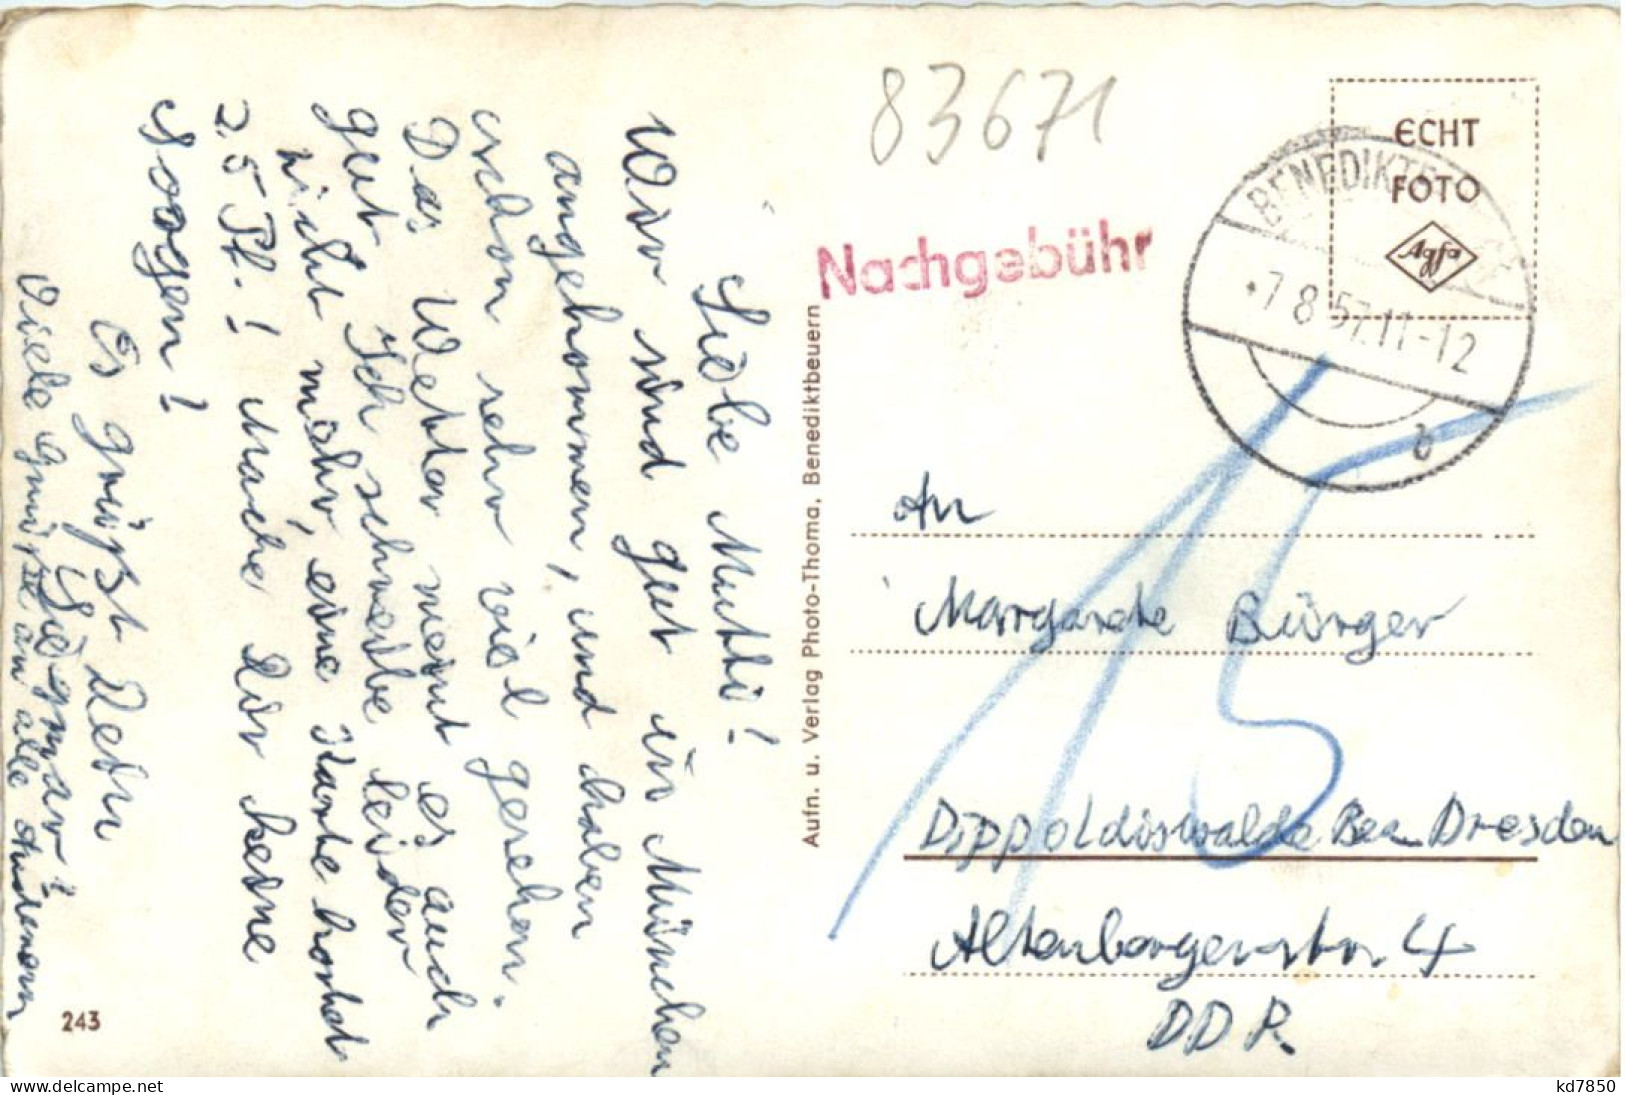 Liebe Mutti!
Wir sind gut in München
angekommen, und haben
schon sehr viel gesehen.
Das Wetter meint es auch
gut. Ich schreibe leider
nicht mehr, eine Karte kostet
25 Pf.! Mache Dir keine
Sorgen!
Es grüßt Dein
Siegmar!
Viele Grüße an alle Anderen
243
Aufn. u. Verlag Photo-Thoma, Benediktbeuern
83671
Nachgebühr
ECHT
FOTO
Agfa
BENEDIKTB
7.8.57.11-12
b
15
An
Margarete Bürger
Dippoldiswalde Bez. Dresden
Altenbergerstr. 4
DDR.
www.delcampe.net
kd7850